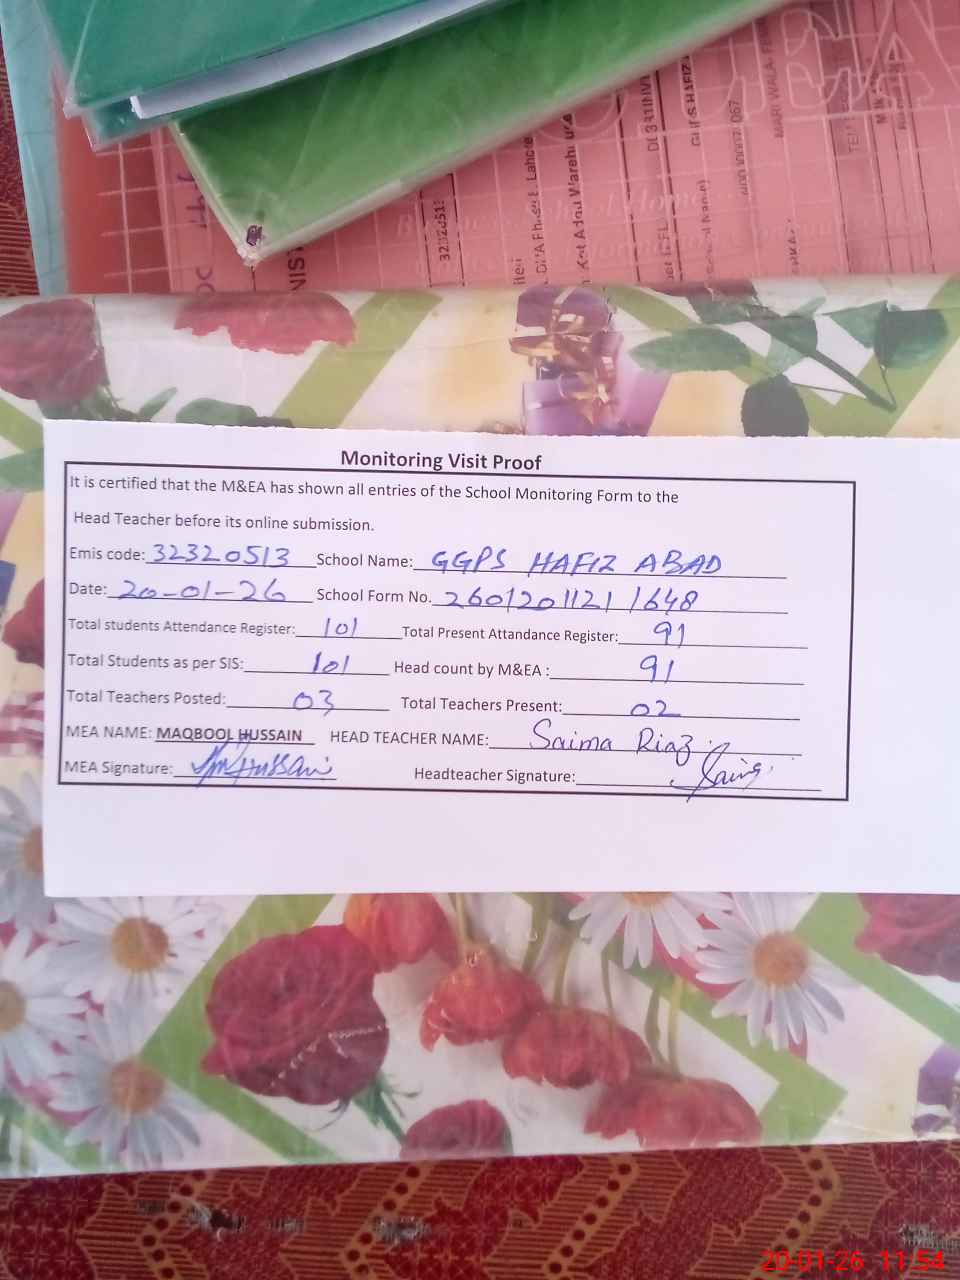 32320513
DHA Phase 8, Lahore
Monitoring Visit Proof
It is certified that the M&EA has shown all entries of the School Monitoring Form to the
Head Teacher before its online submission.
Emis code: 32320513 School Name: GGPS HAFIZ ABAD
Date: 20-01-26 School Form No. 26012011211648
Total students Attendance Register: 101 Total Present Attandance Register: 91
Total Students as per SIS: 101 Head count by M&EA : 91
Total Teachers Posted: 03 Total Teachers Present: 02
MEA NAME: MAQBOOL HUSSAIN HEAD TEACHER NAME: Saima Riaz
MEA Signature: Headteacher Signature: Saima
20-01-26 11:54